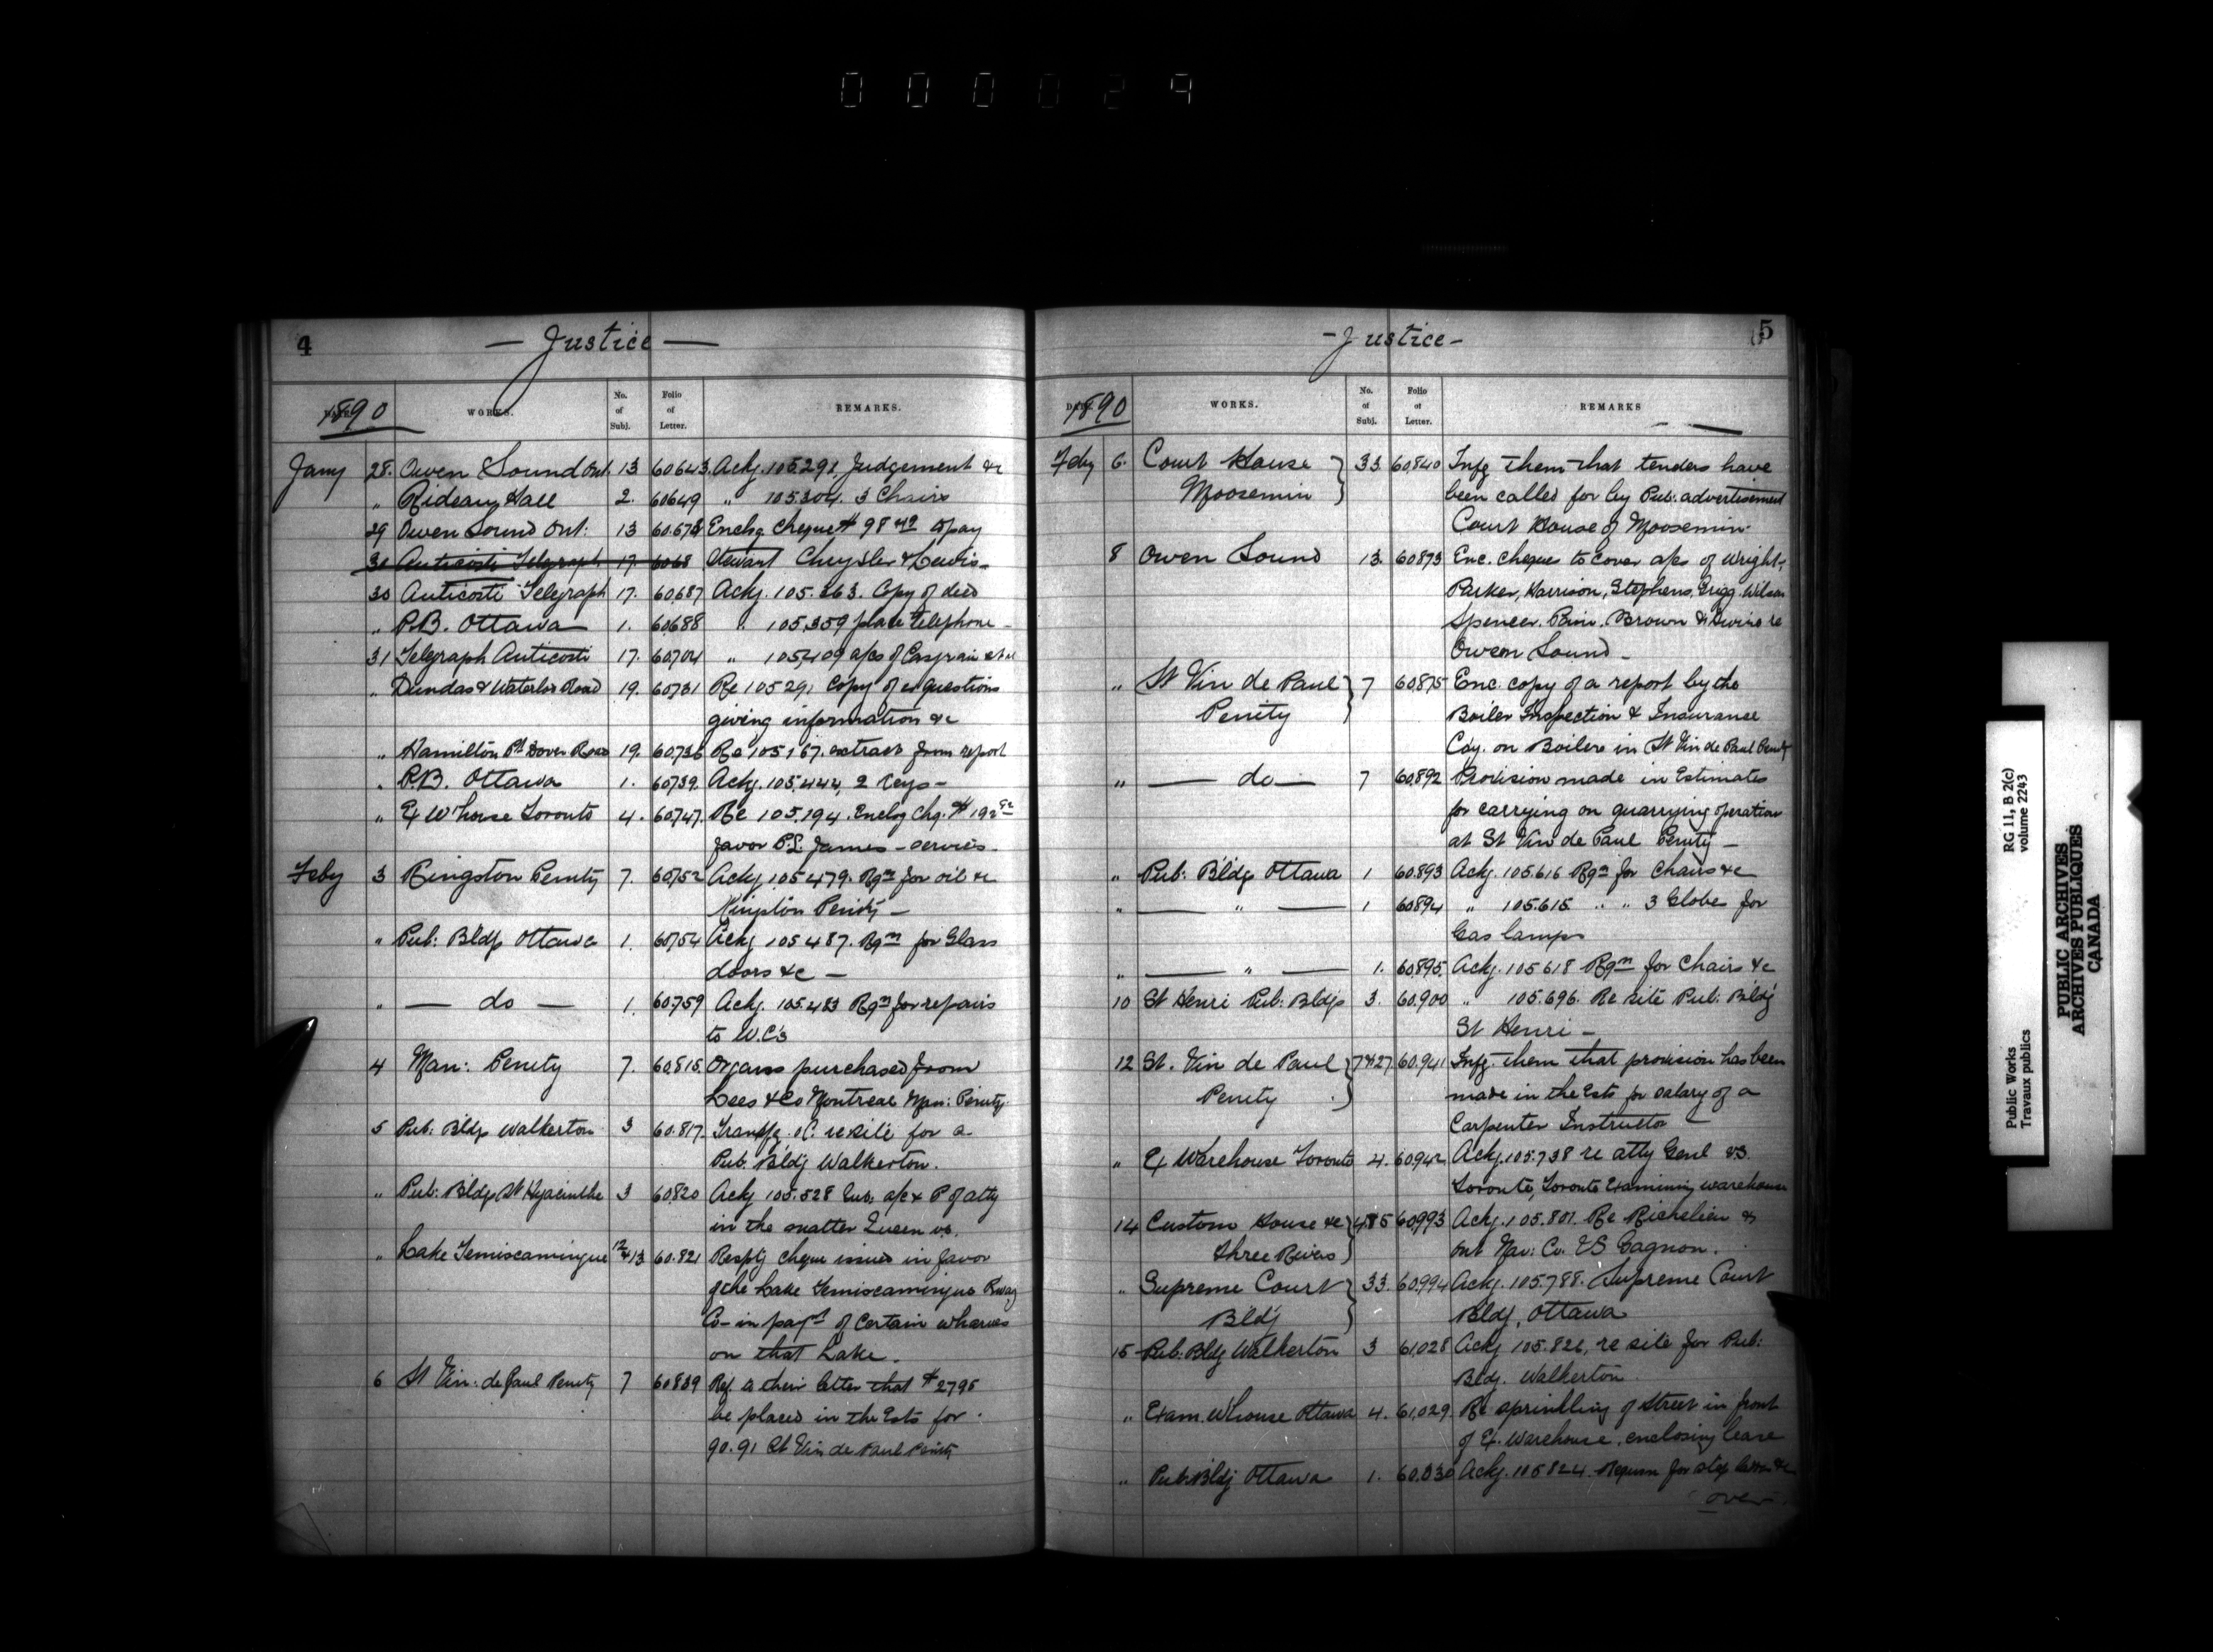 000029
4
— Justice —
1890
WORKS.
No. of Subj.
Folio of Letter.
REMARKS.
Jany 28. Owen Sound Ont. 13 60643. Ackg. 105.291, Judgement &c
" Rideau Hall 2. 60649 " 105.304. 3 Chairs
29 Owen Sound Ont: 13 60.673 Enclsg Cheque # 98 to pay
30 Anticosti Telegraph 17. 6068 Stewart Chrysler & Lewis –
30 Anticosti Telegraph 17. 60687 Ackg. 105.363. Copy of deed
" P.B. Ottawa 1. 60688 " 105,359 place Telephone –
31 Telegraph Anticosti 17. 60704 " 105,409 a/cs of et al
" Dundas & Waterloo Road 19. 60731 Re 105291 Copy of questions
giving information &c
" Hamilton Pt Dover Road 19. 60736 Re 105167. extract from report
" P.B. Ottawa 1. 60739. Ackg. 105,444, 2 Keys –
" Ex W'house Toronto 4. 60747. Re 105,194. Enclsg Chq. # 192
favor P.L. James – services –
Feby 3 Kingston Penity 7. 60752 Ackg 105479. Rqn for oil &c
Kingston Penity –
" Pub: Bldg Ottawa 1. 60754 Ackg 105487. Rqn for Glass
doors &c –
" — do — 1. 60759 Ackg. 105.483 Rqn for repairs
to W.C's
4 Man: Penity 7. 60,815. Organs purchased from
Lees & Co Montreal Man: Penity.
5 Pub: Bldg Walkerton 3 60.817. Transfg. OC. re site for a
Pub. Bldg Walkerton.
" Pub: Bldg St Hyacinthe 3 60820 Ackg 105.528 a/c & P of atty
in the matter Queen vs.
" Lake Temiscamingue 12 & 13 60.821 Resptg cheque issued in favor
of the Lake Temiscamingue Rway
Co – in paymt of Certain wharves
on that Lake.
6 St Vin: de Paul Penity 7 60839 Ref. to their letter that # 2795
be placed in the Ests for
90.91 St Vin de Paul Penity
5
– Justice –
1890
WORKS.
No. of Subj.
Folio of Letter.
REMARKS
Feby 6. Court House } 33. 60,840 Infg them that tenders have
Moosemin been called for by Pub: advertisement
Court House of Moosemin.
8 Owen Sound 13. 60873 Enc. cheques to cover a/cs of Wright,
Parker, Harrison, Stephens, Grigg. Wilson
Spencer. Brown & re
Owen Sound –
" St Vin de Paul } 7 60,875 Enc. copy of a report by the
Penity Boiler Inspection & Insurance
Coy. on Boilers in St Vin de Paul Penity
" — do — 7 60.892 Provision made in Estimates
for carrying on quarrying operation
at St Vin de Paul Penity –
" Pub: Bldg Ottawa 1 60.893 Ackg. 105.616 Rqn for Chairs &c
" — " — 1 60894 " 105.615 " " 3 Globes for
Gas lamps
" — " — 1. 60895. Ackg. 105.618 Rqn for Chairs &c
10 St Henri Pub: Bldg 3. 60.900 " 105.696. Re site Pub: Bldg
St Henri –
12 St. Vin de Paul } 7&27. 60.941 Infg. them that provision has been
Penity made in the Ests for salary of a
Carpenter Instructor –
" Ex Warehouse Toronto 4. 60942. Ackg. 105.738 re atty Genl vs.
Toronto, Toronto Examining warehouse
14 Custom House &c } 4&5 60,993 Ackg. 105.801. Re Richelieu &
Three Rivers Ont Nav: Co. VS Gagnon.
" Supreme Court } 33. 60.994 Ackg. 105.788. Supreme Court
Bldg Bldg, Ottawa
15 Pub: Bldg Walkerton 3 61,028 Ackg 105.826, re site for Pub:
Bldg. Walkerton.
" Exam. W'house Ottawa 4. 61,029. Re sprinkling of street in front
of Ex. Warehouse, enclosing lease
" Pub: Bldg Ottawa 1. 60.030 Ackg. 105824. Requsn for step &c
over.
Public Works
Travaux publics
RG 11, B 2(c)
volume 2243
PUBLIC ARCHIVES
ARCHIVES PUBLIQUES
CANADA